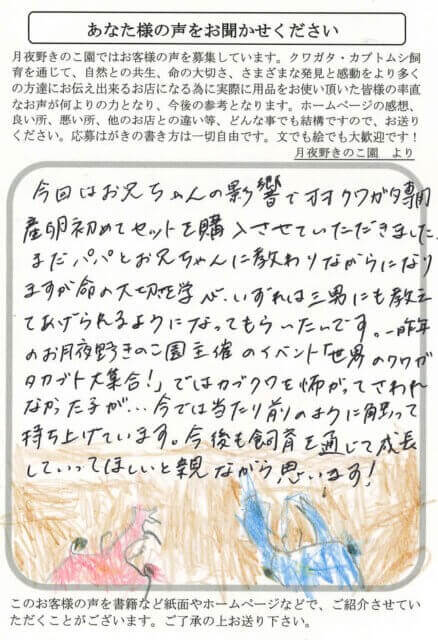 あなた様の声をお聞かせください
月夜野きのこ園ではお客様の声を募集しています。クワガタ・カブトムシ飼
育を通じて、自然との共生、命の大切さ、さまざまな発見と感動をより多く
の方達にお伝え出来るお店になる為に実際に用品をお使い頂いた皆様の率直
なお声が何よりの力となり、今後の参考となります。ホームページの感想、
良い所、悪い所、他のお店との違い等、どんな事でも結構ですので、お送り
ください。応募はがきの書き方は一切自由です。文でも絵でも大歓迎です！
月夜野きのこ園　より
今回はお兄ちゃんの影響でオオクワガタ専用
産卵初めてセットを購入させていただきました。
まだパパとお兄ちゃんに教わりながらになり
ますが命の大切を学び、いずれは三男にも教え
てあげられるようになってもらいたいです。一昨年
のお月夜野きのこ園主催のイベント「世界のクワガ
タカブト大集合！」ではカブクワを怖がってさわれ
なかった子が…今では当たり前のように触って
持ち上げています。今後も飼育を通じて成長
していってほしいと親ながら思います！
このお客様の声を書籍など紙面やホームページなどで、ご紹介させてい
ただくことがございます。ご了承の上お送り下さい。